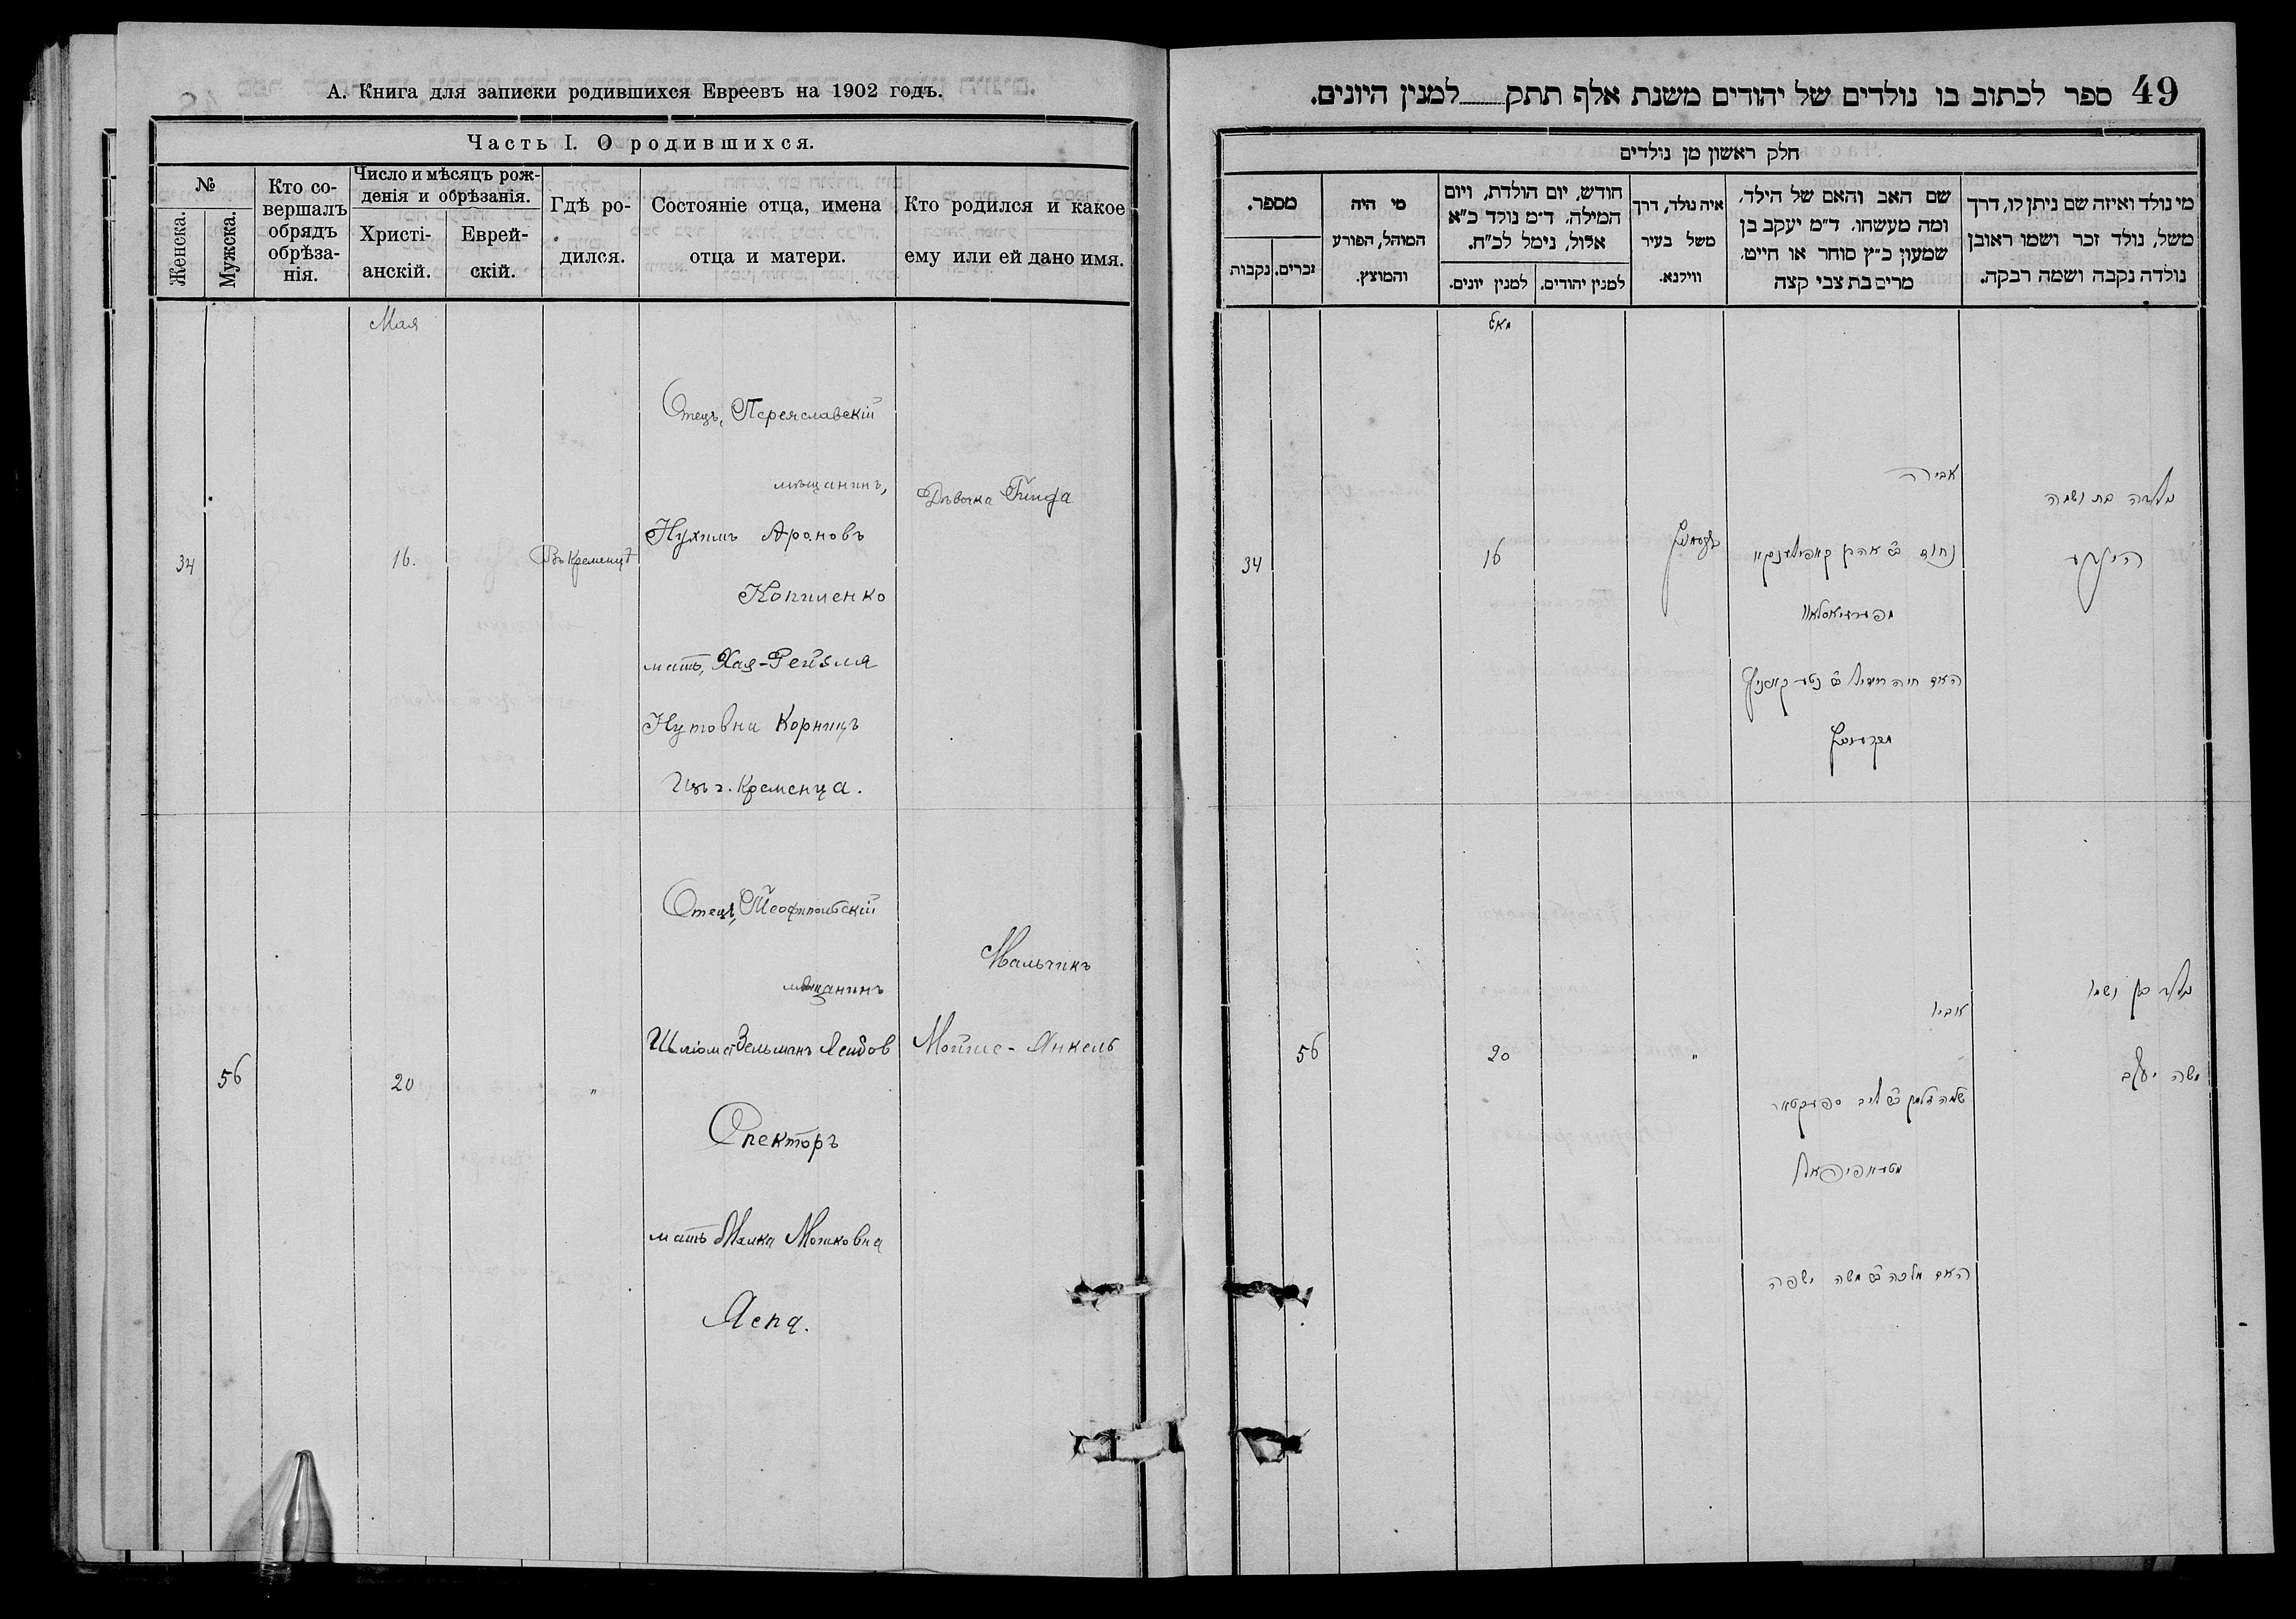 А. Книга для записки родившихся Евреевъ на 1902 годъ.
Часть I. О родившихся.
№
Женска.
Мужска.
Кто со-
вершалъ
обрядъ
обрѣза-
нія.
Число и мѣсяцъ рож-
денія и обрѣзанія.
Христі-
анскій.
Еврей-
скій.
Гдѣ ро-
дился.
Состояніе отца, имена
отца и матери.
Кто родился и какое
ему или ей дано имя.
Мая
34
16.
Въ Кременцѣ
Отецъ, Переяславскій
мѣщанинъ,
Нухимъ Ароновъ
Копиленко
мать, Хая-Рейзля
Нутовна Корницъ
Изъ г. Кременца.
Дѣвочка Гинда
56
20
"
Отецъ, Теофипольскій
мѣщанинъ
Шліома Зельманъ Леибов
Спекторъ
мать Малка Мошковна
Яспа.
Мальчикъ
Мойше-Янкель
49 ספר לכתוב בו נולדים של יהודים משנת אלף תתק למנין היונים.
חלק ראשון מן נולדים
מספר.
נקבות
זכרים.
מי היה
המוהל, הפורע
והמוצץ.
חודש, יום הולדת, ויום
המילה. ד״מ נולד כ״א
אלול, נימל לכ״ח.
למנין יונים.
למנין יהודים.
איה נולד, דרך
משל בעיר
ווילנא.
שם האב והאם של הילד.
ומה מעשהו. ד״מ יעקב בן
שמעון כ״ץ סוחר או חייט.
מרים בת צבי קצה
מי נולד ואיזה שם ניתן לו, דרך
משל, נולד זכר ושמו ראובן
נולדה נקבה ושמה רבקה.
מאי
34
16
אביה
האם חיה
נולדה בת ושמה
הינדע
56
20
"
אביו
שלמה זלמן ב״ר ליב ספעקטאר
האם מלכה ב״ר משה ישפה
נולד בן ושמו
משה יעקב